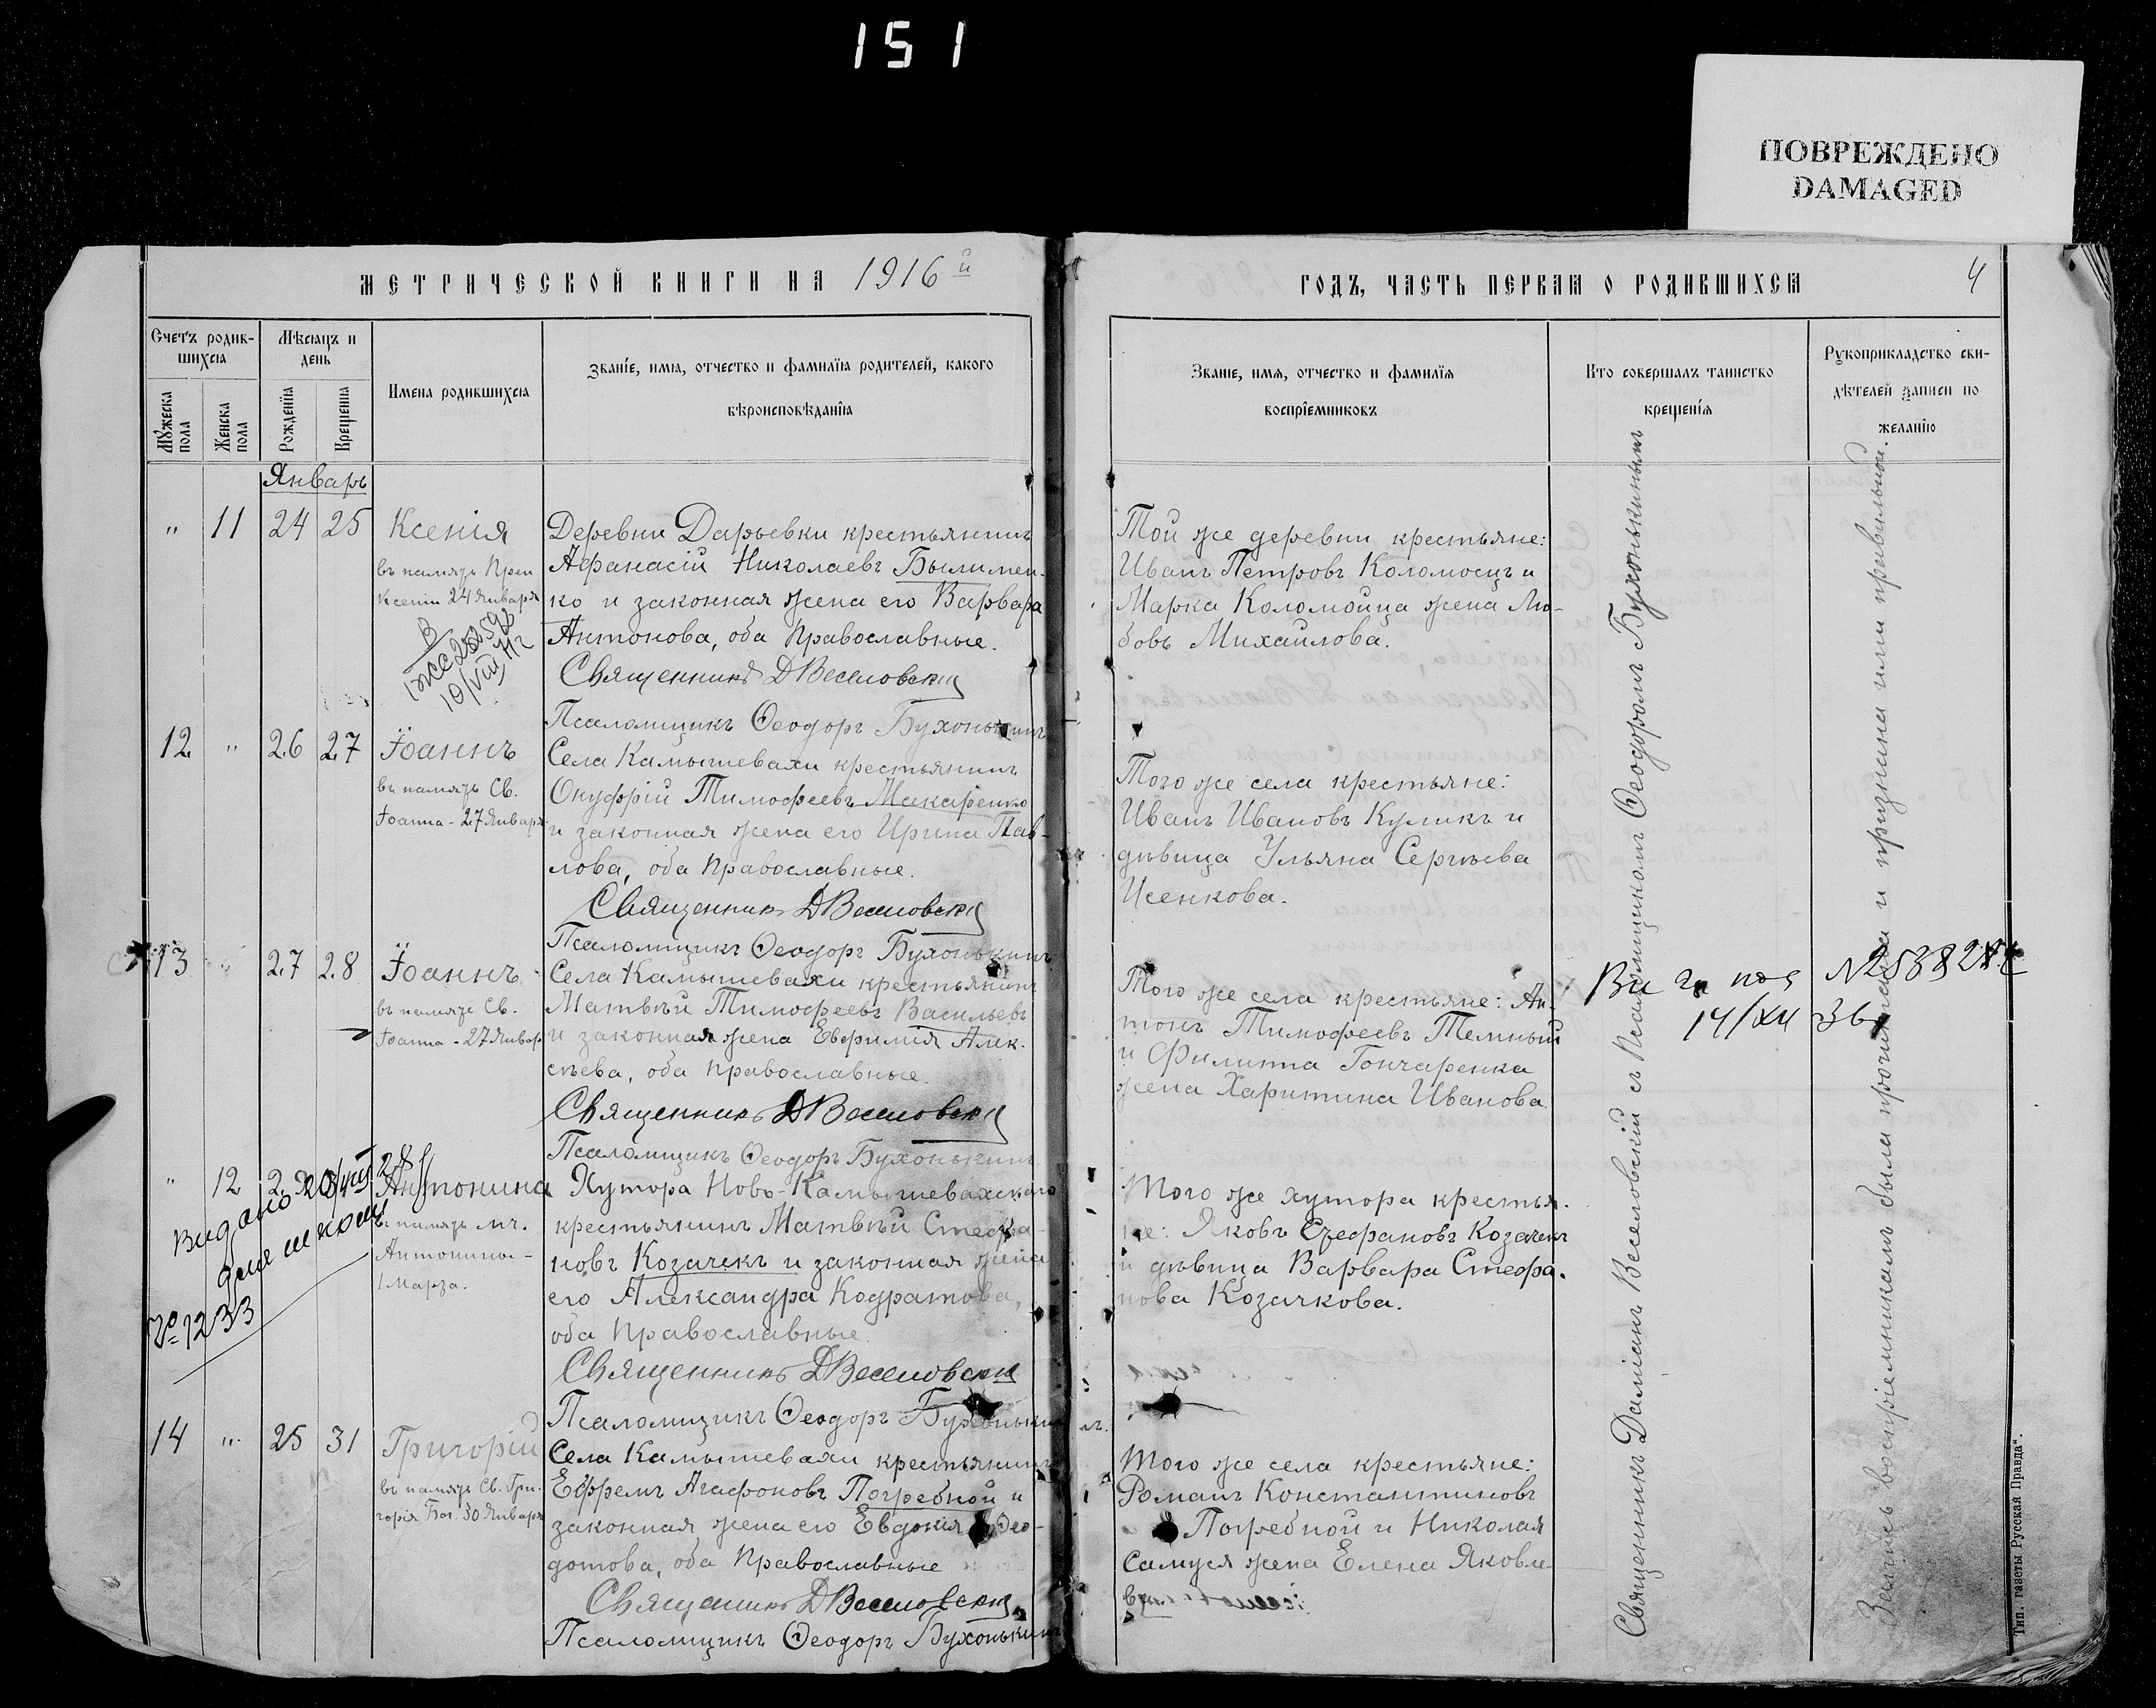 151
ПОВРЕЖДЕНО
DAMAGED
МЕТРИЧЕСКОЙ КНИГИ НА 1916й
Счетъ родив-
шихся
Мѣсяцъ и
день
Мужеска
пола
Женска
пола
Рожденія
Крещенія
Имена родившихся
Званіе, имя, отчество и фамилія родителей, какого
вѣроисповѣданія
Январь
" 11 24 25 Ксенія
въ память Преп
Ксеніи 24 Января
10/VIII
Деревни Дарьевки крестьянинъ
Афанасій Николаевъ Былимен-
ко и законная жена его Варвара
Антонова, оба православные.
Священникъ ДВеселовскій
Псаломщикъ Ѳеодоръ Бухонькинъ
12 " 26 27 Іоаннъ
въ память Св.
Іоанна - 27 Января
Села Камышевахи крестьянинъ
Онуфрій Тимофеевъ Макаренко
и законная жена его Ирина Пав-
лова, оба православные.
Священникъ ДВеселовскій
Псаломщикъ Ѳеодоръ Бухонькинъ
13 " 27 28 Іоаннъ
въ память Св.
Іоанна - 27 Январ
Села Камышевахи крестьянинъ
Матвѣй Тимофеевъ Васильевъ
и законная жена Евфимія Алек-
сѣева, оба православные.
Священникъ ДВеселовскій
Псаломщикъ Ѳеодоръ Бухонькинъ
" 12 28 Антонина
въ память мч.
Антонины -
1 Марта.
Видано
для школы
№ 1233
Хутора Ново-Камышевахскаго
крестьянинъ Матвѣй Стефа-
новъ Козачекъ и законная жена
его Александра Кодратова,
оба православные.
Священникъ ДВеселовскій
Псаломщикъ Ѳеодоръ Бухонькинъ
14 " 25 31 Григорій
въ память Св. Гри-
горія Бог. 30 Января
Села Камышевахи крестьянинъ
Ефремъ Агафоновъ Погребной и
законная жена его Евдокія Ѳео-
дотова, оба православные
Священникъ ДВеселовскій
Псаломщикъ Ѳеодоръ Бухонькинъ
ГОДЪ, ЧАСТЬ ПЕРВАЯ О РОДИВШИХСЯ
4
Званіе, имя, отчество и фамилія
воспріемниковъ
Кто совершалъ таинство
крещенія
Рукоприкладство сви-
дѣтелей записи по
желанію
Той же деревни крестьяне:
Иванъ Петровъ Коломоецъ и
Марка Коломойца жена Лю-
бовь Михайлова.
Того же села крестьяне:
Иванъ Ивановъ Куликъ и
дѣвица Ульяна Сергѣева
Исенкова.
Того же села крестьяне: Ан-
тонъ Тимофеевъ Темный
и Филиппа Гончаренка
жена Харитина Иванова.
14/XII 36
Того же хутора крестья-
не: Яковъ Стефановъ Козачекъ
и дѣвица Варвара Стефа-
нова Козачкова.
Того же села крестьяне:
Романъ Константиновъ
Погребной и Николая
Самуся жена Елена Яковле
ва
Священникъ Даміанъ Веселовскій съ Псаломщикомъ Ѳеодоромъ Бухонькинымъ
Запись воспріемникамъ была прочитана и признана ими правильной.
Тип. газеты "Русская Правда".